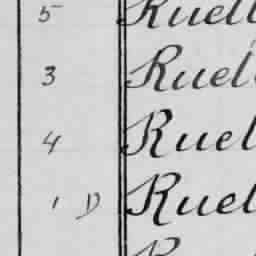 5 Ruell
3 Ruel
4 Ruel
1 D Ruel